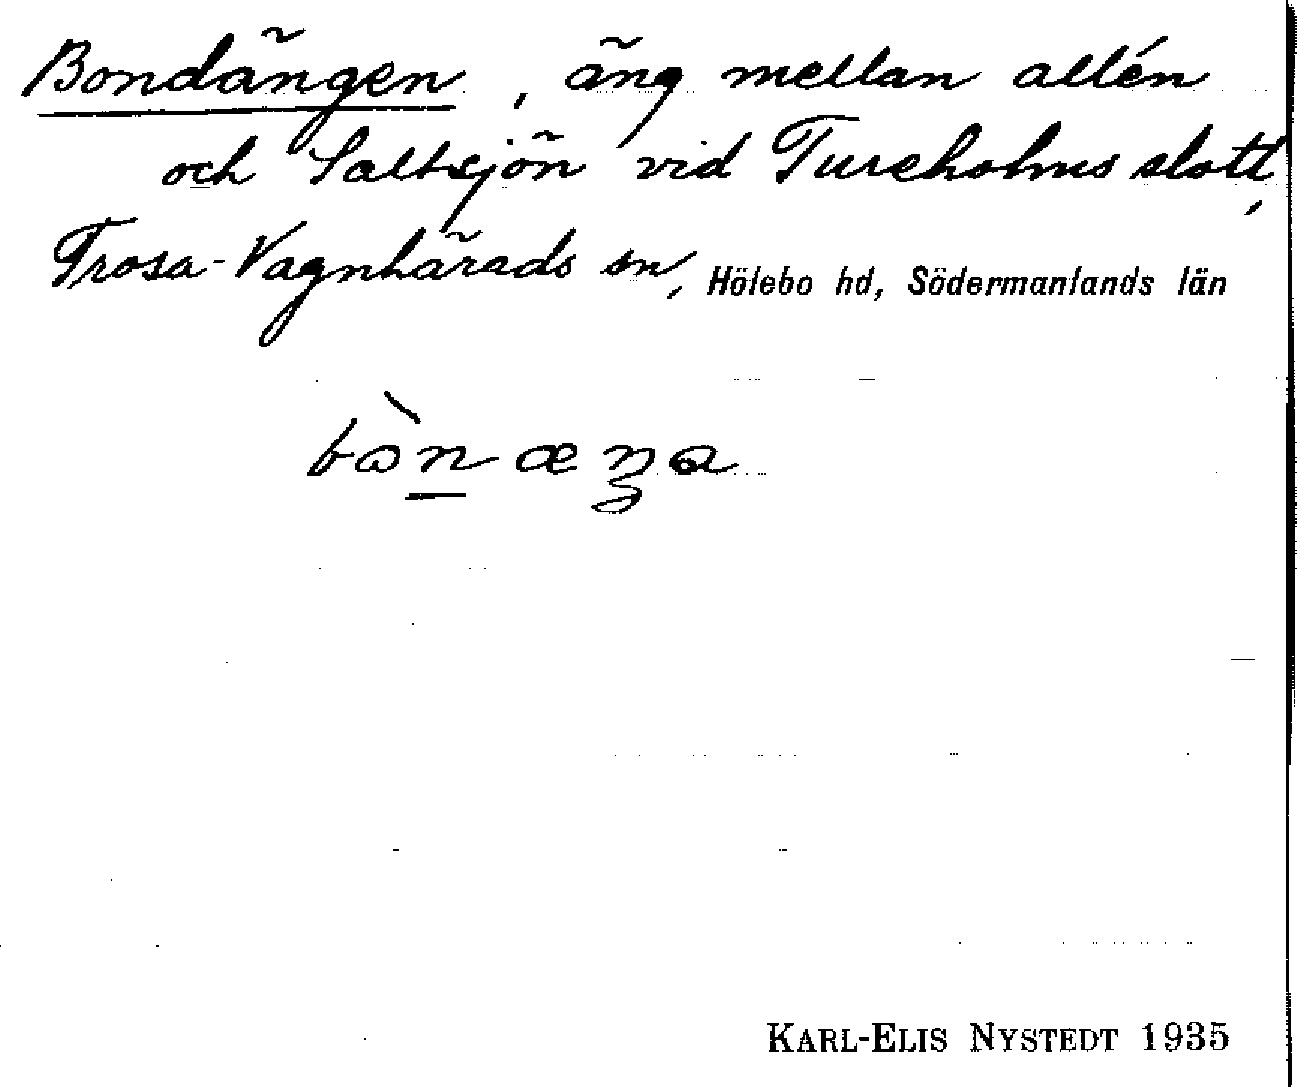 Bondängen, äng mellan allén
och Saltsjön vid Tureholms slott,
Trosa-Vagnhärads sn, Hölebo hd, Södermanlands län
KARL-ELIS NYSTEDT 1935